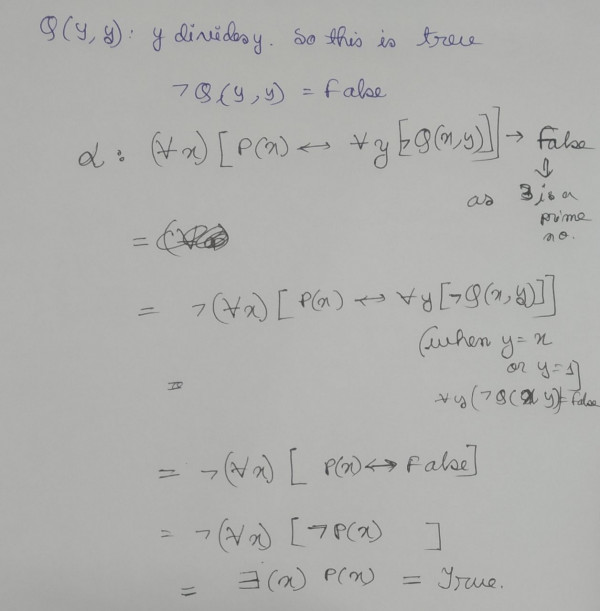 Q(y, y): y divides y. So this is true
¬Q(y, y) = False
α : (∀x) [P(x) ↔ ∀y [¬Q(x,y)]] → False
⇓
as 3 is a
prime
no.
=
= ¬(∀x) [P(x) ↔ ∀y [¬Q(x,y)]]
(when y = x
or y = 1]
=
∀y (¬Q(x y) = False
= ¬(∀x) [ P(x) ↔ False]
= ¬(∀x) [¬P(x) ]
= ∃(x) P(x) = True.